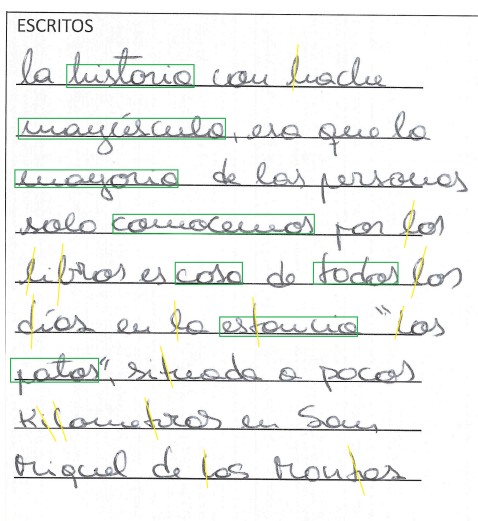 ESCRITOS
la historia con hache
mayúscula, esa que la
mayoria de las personas
solo conocemos por los
libros es cosa de todos los
días en la estancia "Los
patos", situada a pocos
Kilometros en San
Miguel de los Montes